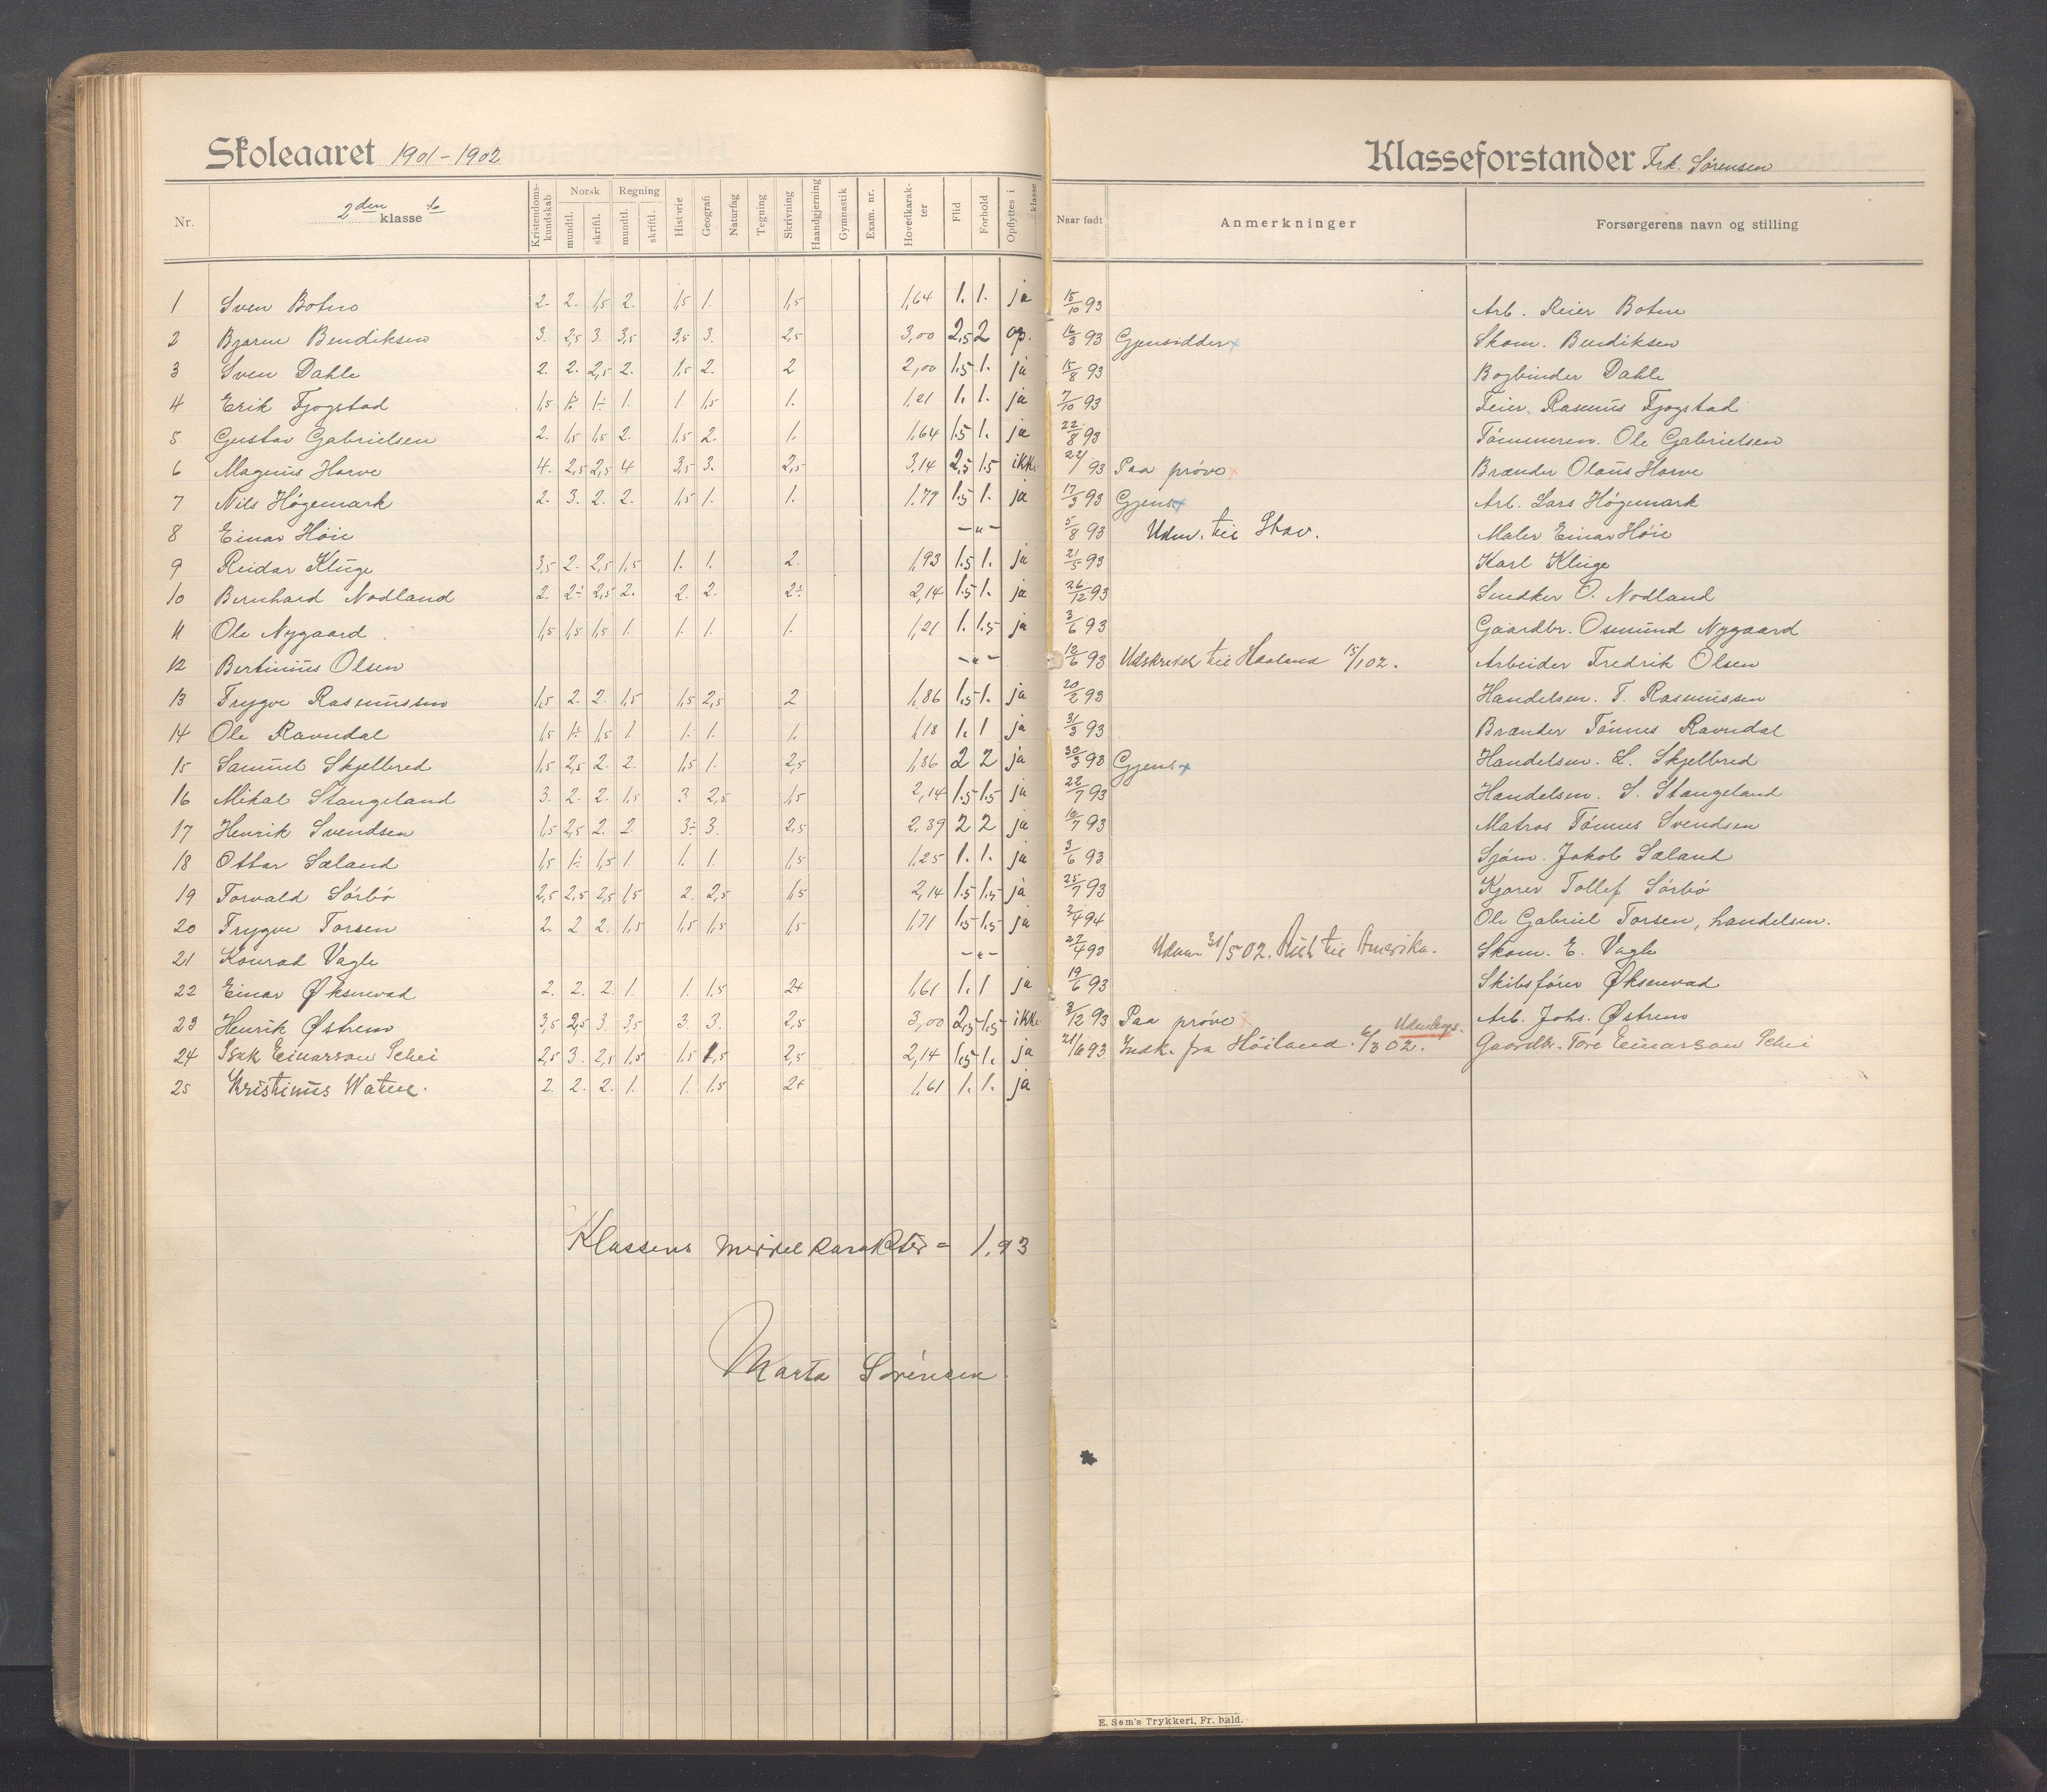 Skoleaaret 1901-1902
Klasseforstander Frk. Sørensen
Nr. 2den klasse b Kristendomskundskab Norsk mundtl. skriftl. Regning mundtl. skriftl. Historie Geografi Naturfag Tegning Skrivning Haandgjerning Gymnastik Exam. nr. Hovedkarakter Flid Forhold Opflyttes i klasse Naar født Anmerkninger Forsørgerens navn og stilling
1 Sven Botne 2. 2. 1,5 2. 1,5 1. 1,5 1,64 1. 1. ja 15/10 93 Arb. Reier Botne
2 Bjarne Bendiksen 3. 2,5 3. 3,5 3,5 3. 2,5 3,00 2,5 2 op. 16/3 93 Gjensidder x Skom. Bendiksen
3 Sven Dahle 2. 2. 2,5 2. 1,5 2. 2 2,00 1.5 1. ja 15/8 93 Bogbinder Dahle
4 Erik Fjogstad 1,5 1÷ 1÷ 1. 1 1,5 1. 1,21 1. 1. ja 7/10 93 Feier. Rasmus Fjogstad
5. Gustav Gabrielsen 2. 1,5 1,5 2. 1,5 2. 1. 1,64 1.5 1. ja 22/8 93 Tømmerm. Ole Gabrielsen
6 Magnus Harve 4. 2,5 2,5 4 3,5 3. 2,5 3,14 2,5 1.5 ikke 24/1 93 Paa prøve x Brænder Olaus Harve
7 Nils Høgemark 2. 3. 2. 2. 1,5 1. 1. 1,79 1.5 1. ja 17/3 93 Gjens. x Arb. Lars Høgemark
8 Einar Høie -"- 5/8 93 Udm. til Stav. Maler Einar Høie
9 Reidar Kluge 3,5 2. 2,5 1,5 1. 1. 2. 1,93 1.5 1. ja 21/5 93 Karl Kluge
10 Bernhard Nodland 2. 2÷ 2,5 2. 2. 2. 2÷ 2,14 1.5 1. ja 26/12 93 Snedker O. Nodland
11 Ole Nygaard 1,5 1,5 1,5 1. 1. 1. 1. 1,21 1. 1.5 ja 3/6 93 Gaardbr. Osmund Nygaard
12 Bertinius Olsen -"- 12/6 93 Udskrevet til Haaland 15/1 02. Arbeider Fredrik Olsen
13 Trygve Rasmussen 1,5 2. 2. 1,5 1,5 2,5 2 1,86 1.5 1. ja 20/2 93 Handelsm. T. Rasmussen
14 Ole Ravndal 1,5 1÷ 1,5 1 1. 1. 1. 1,18 1. 1 ja 31/3 93 Brænder Tønnes Ravndal
15 Samuel Skjelbred 1,5 2,5 2. 2. 1,5 1. 2,5 1,86 2 2 ja 30/3 93 Gjens x Handelsm. L. Skjelbred
16 Mikal Stangeland 3. 2. 2. 1,5 3 2,5 1,5 2,14 1.5 1.5 ja 22/7 93 Handelsm. S. Stangeland
17 Henrik Svendsen 1,5 2,5 2. 2. 3÷ 3. 2,5 2,39 2 2 ja 10/7 93 Matros Tønnes Svendsen
18 Ottar Sæland 1,5 1÷ 1,5 1. 1. 1. 1,5 1,25 1. 1. ja 3/6 93 Sjøm. Jakob Sæland
19 Torvald Sørbø 2,5 2,5 2,5 1,5 2. 2,5 1,5 2,14 1.5 1.5 ja 25/7 93 Kjører Tollef Sørbø
20 Trygve Torsen 2. 2 2. 1,5 1,5 1,5 1,5 1,71 1.5 1.5 ja 2/4 94 Ole Gabriel Torsen, handelsm.
21 Konrad Vagle -"- 27/4 93 Udm. 31/5 02. Reist til Amerika. Skom. E. Vagle
22 Einar Øksnevad 2. 2. 2. 1. 1. 1,5 2+ 1,61 1. 1 ja 19/6 93 Skibsfører Øksnevad
23 Henrik Østrem 3,5 2,5 3. 3,5 3. 3. 2,5 3,00 2,5 1.5 ikke 3/12 93 Paa prøve Arb. Johs. Østrem
24 Isak Einarson Schei 2,5 3. 2,5 1,5 1,5 1,5 2,5 2,14 1.5 1. ja 21/6 93 Indk. fra Høiland 6/3 02. Udenbys. Gaardbr. Tore Einarson Schei
25 Kristinus Watne. 2. 2. 2. 1. 1. 1,5 2+ 1,61 1. 1. ja
Klassens middelkarakter = 1,93
Marta Sørensen
E. Sem's Trykkeri, Fr. hald.